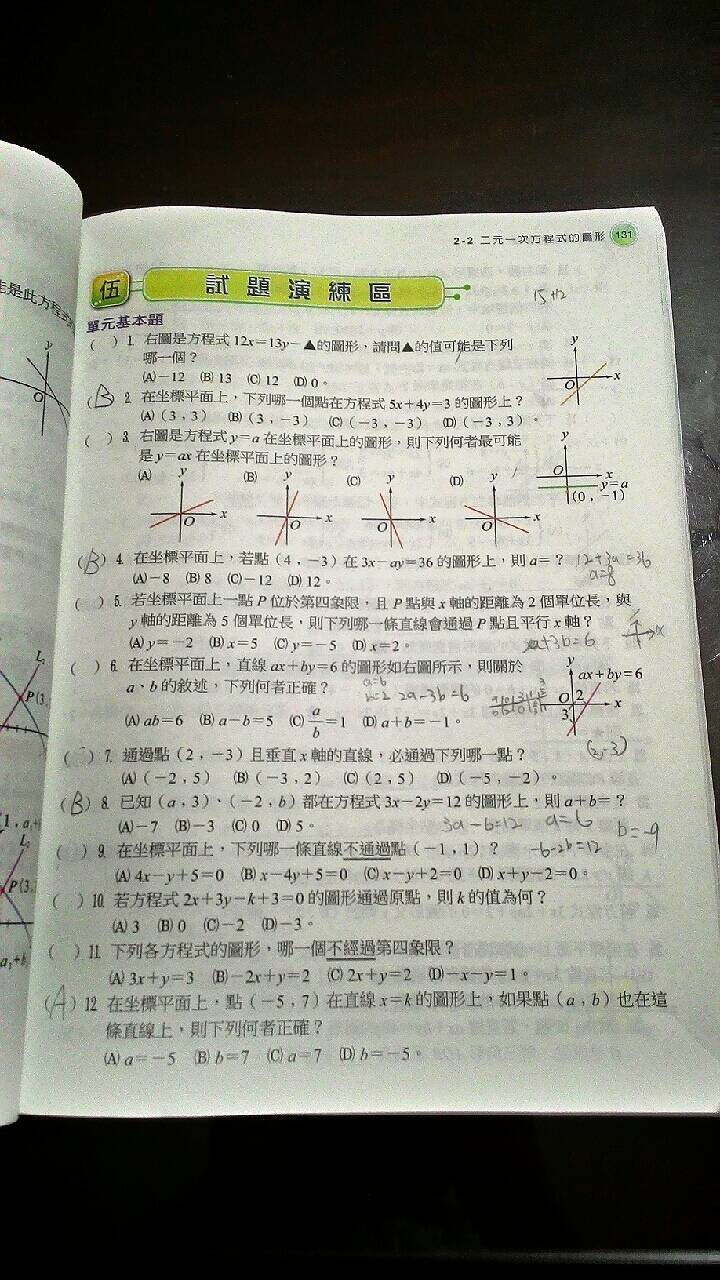 2-2 二元一次方程式的圖形 131
伍 試題演練區
15+12
單元基本題
( ) 1. 右圖是方程式 12x=13y-▲的圖形,請問▲的值可能是下列
哪一個?
(A)-12 (B) 13 (C) 12 (D) 0。
y
O x
(B) 2. 在坐標平面上,下列哪一個點在方程式 5x+4y=3 的圖形上?
(A)(3,3) (B)(3,-3) (C)(-3,-3) (D)(-3,3)。
( ) 3. 右圖是方程式 y=a 在坐標平面上的圖形,則下列何者最可能
是 y=ax 在坐標平面上的圖形?
y
O x
y=a
(0,-1)
(A) y (B) y (C) y (D) y
O x O x O x O x
(B) 4. 在坐標平面上,若點(4,-3)在 3x-ay=36 的圖形上,則 a=? 12+3a=36
(A)-8 (B) 8 (C)-12 (D) 12。 a=8
( ) 5. 若坐標平面上一點 P 位於第四象限,且 P 點與 x 軸的距離為 2 個單位長,與
y 軸的距離為 5 個單位長,則下列哪一條直線會通過 P 點且平行 x 軸?
(A) y=-2 (B) x=5 (C) y=-5 (D) x=2。
( ) 6. 在坐標平面上,直線 ax+by=6 的圖形如右圖所示,則關於
a、b 的敘述,下列何者正確? a=6
2a-3b=6
(A) ab=6 (B) a-b=5 (C) a/b=1 (D) a+b=-1。
y ax+by=6
O 2 x
3
( ) 7. 通過點(2,-3)且垂直 x 軸的直線,必通過下列哪一點?
(A)(-2,5) (B)(-3,2) (C)(2,5) (D)(-5,-2)。
(B) 8. 已知(a,3)、(-2,b)都在方程式 3x-2y=12 的圖形上,則 a+b=?
(A)-7 (B)-3 (C) 0 (D) 5。 3a-6=12 a=6 b=-9
( ) 9. 在坐標平面上,下列哪一條直線不通過點(-1,1)? -6-2b=12
(A) 4x-y+5=0 (B) x-4y+5=0 (C) x-y+2=0 (D) x+y-2=0。
( ) 10. 若方程式 2x+3y-k+3=0 的圖形通過原點,則 k 的值為何?
(A) 3 (B) 0 (C)-2 (D)-3。
( ) 11. 下列各方程式的圖形,哪一個不經過第四象限?
(A) 3x+y=3 (B)-2x+y=2 (C) 2x+y=2 (D)-x-y=1。
(A) 12. 在坐標平面上,點(-5,7)在直線 x=k 的圖形上,如果點(a,b)也在這
條直線上,則下列何者正確?
(A) a=-5 (B) b=7 (C) a=7 (D) b=-5。